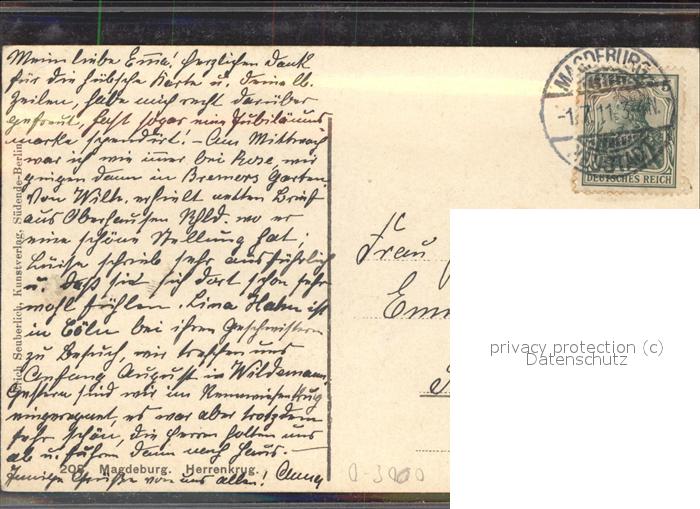 Meine liebe Emma! Herzlichen Dank
für die hübsche Karte u. Deine lb.
Zeilen, habe mich recht darüber
gefreut, hast sogar eine Jubiläums
marke spendirt! – Am Mittwoch
war ich wie immer bei Rose, wir
gingen dann in Bremers Garten.
Von Willi erhielt netten Brief
aus Oberhausen Rhld. wo er
eine schöne Stellung hat;
Luise schrieb sehr ausführlich
u. daß sie sich dort schon sehr
wohl fühlen. Lina Hahn ist
in Cöln bei ihren Geschwistern
zu Besuch, wir treffen uns
Anfang August in Wildemann.
Gestern sind wir im Rennwiesenkrug
eingeregnet, es war aber trotzdem
sehr schön, die Herren holten uns
ab u. fuhren dann nach Haus. –
Innige Grüße von uns allen!
206. Magdeburg. Herrenkrug.
Erich Seuberlich, Kunstverlag, Südende-Berlin
MAGDEBURG
NEUSTADT
5
DEUTSCHES REICH
Frau
Emm
privacy protection (c)
Datenschutz